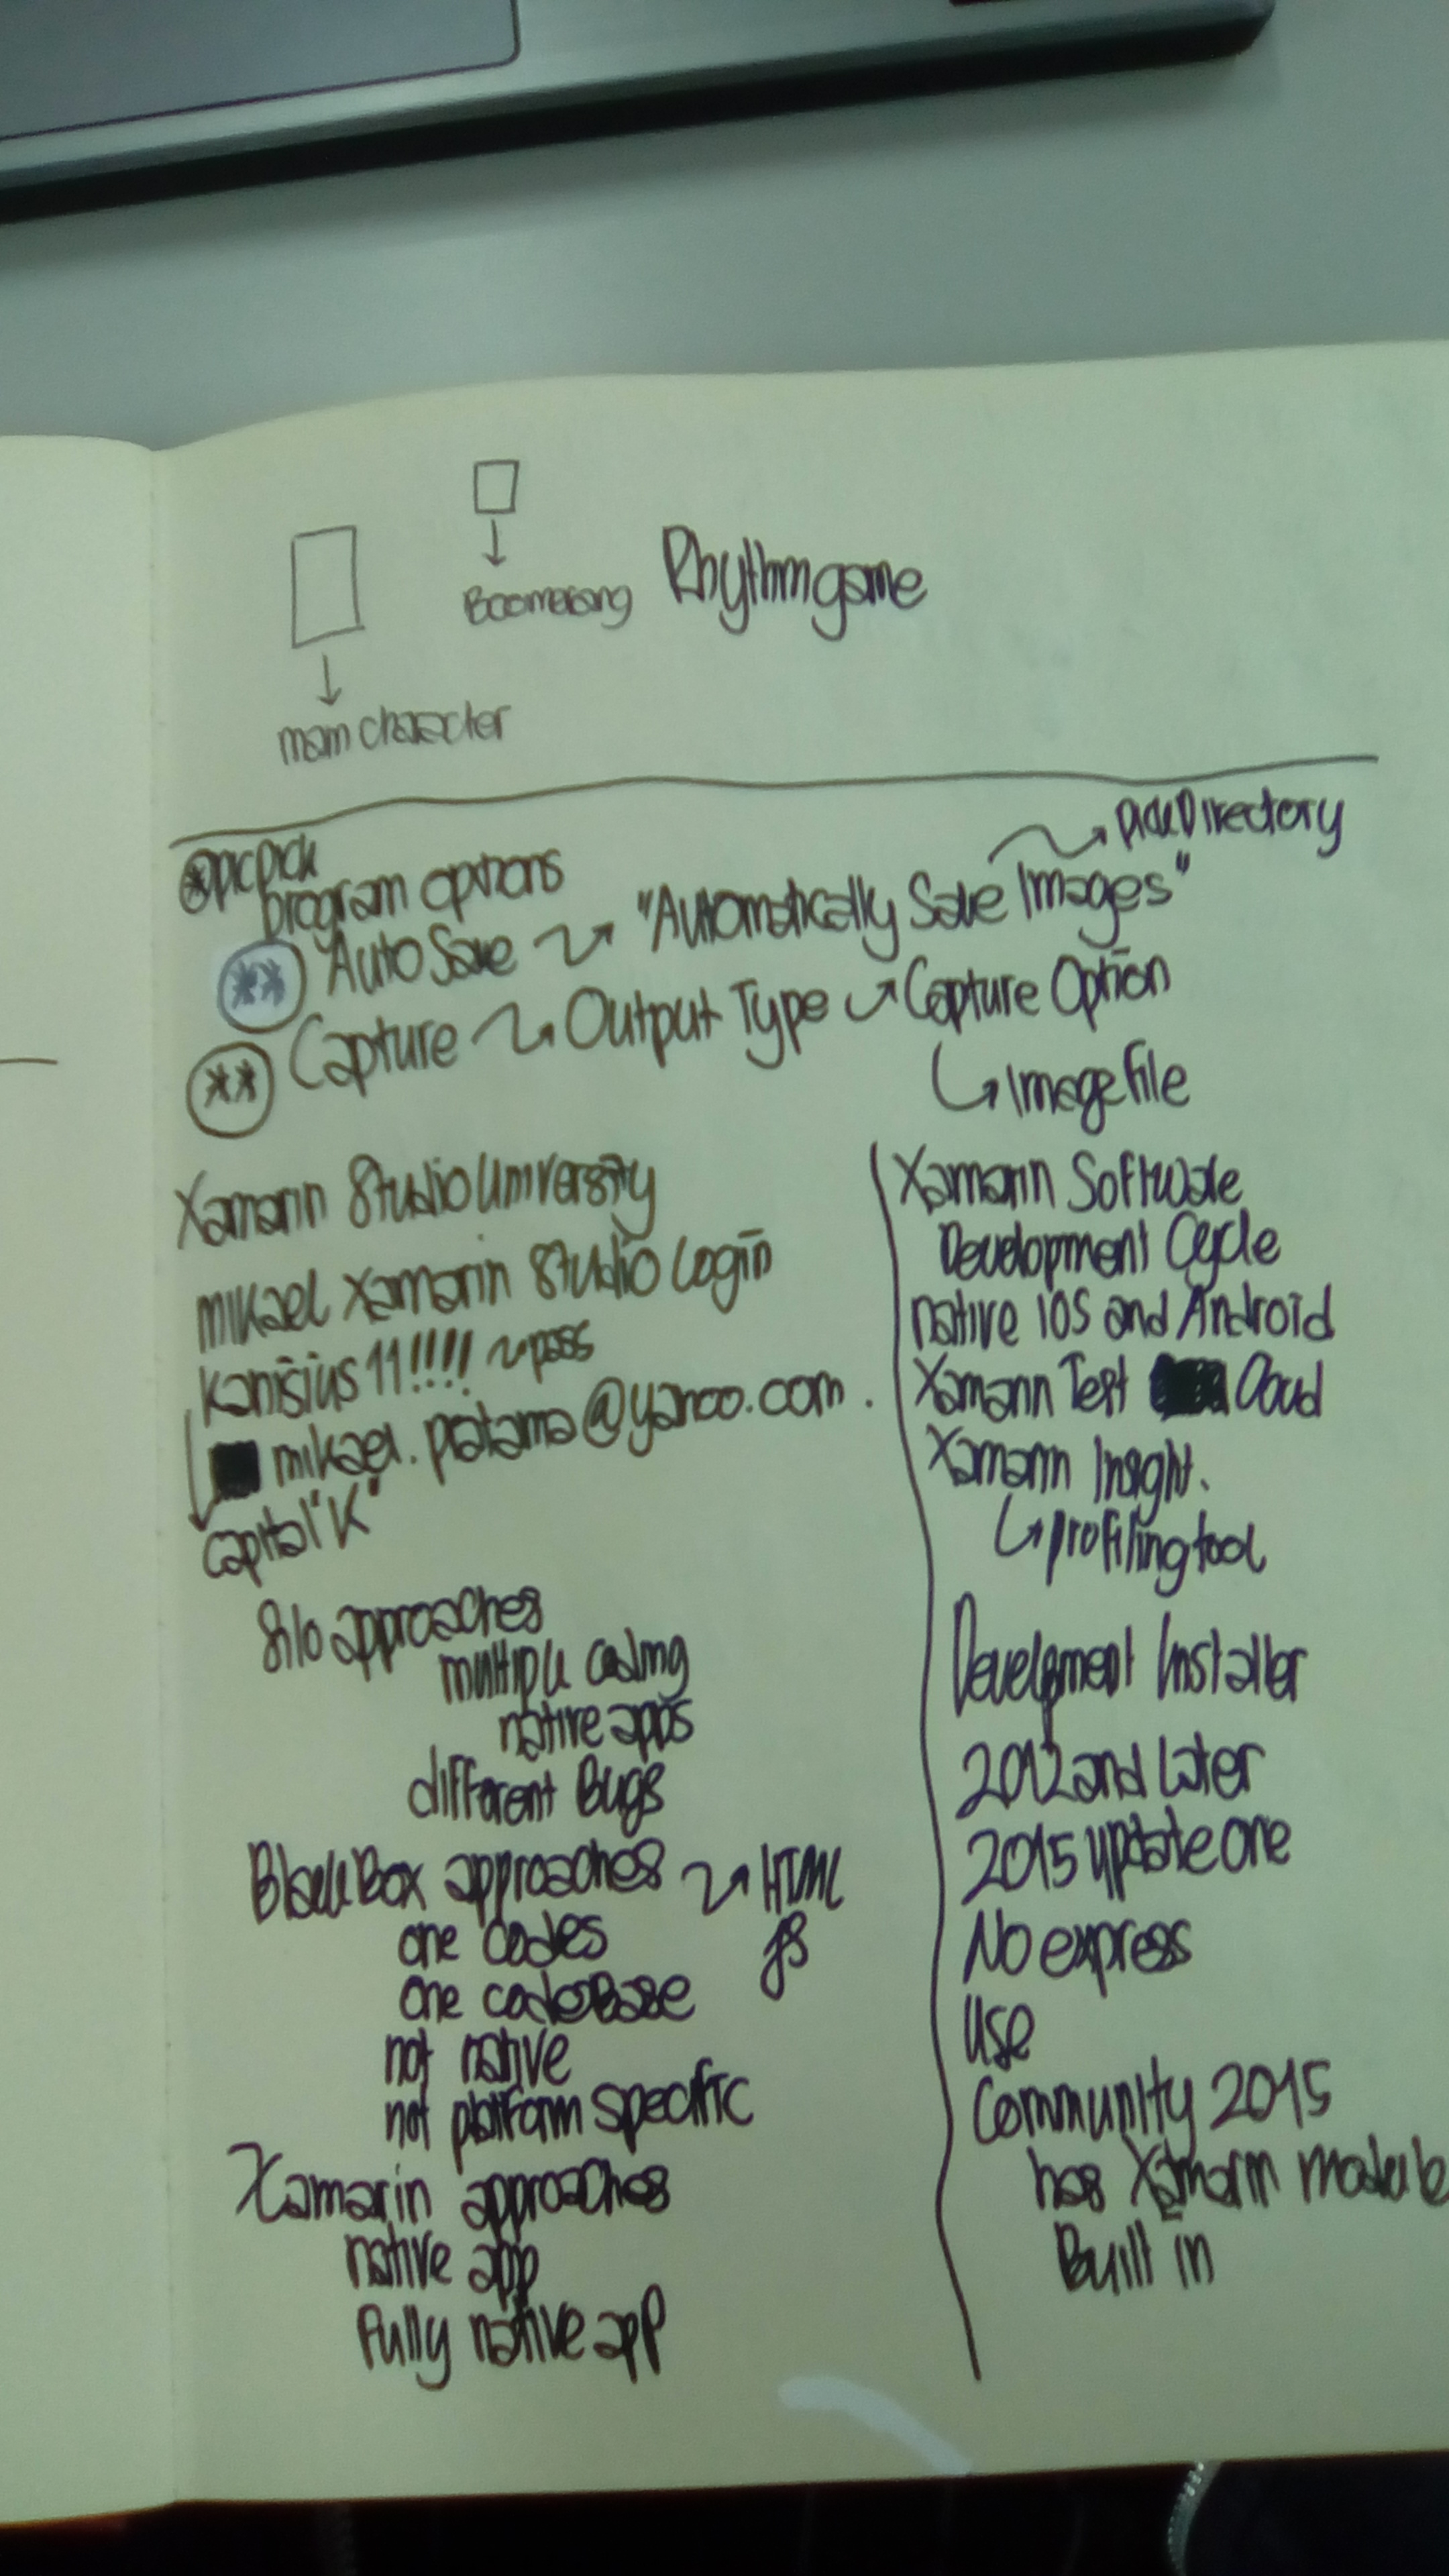 Boomerang
Rhythm game
main character
picpick
program options
Pick Directory
** Auto Save "Automatically Save Images"
** Capture Output Type Capture Option
Image File
Xamarin Studio University
mikael Xamarin Studio Login
kanisius 11!!!! pass
mikael.pratama@yahoo.com.
capital "K"
Silo approaches
multiple coding
native apps
different Bugs
Black Box approaches HTML
JS
one codes
one codebase
not native
not platform specific
Xamarin approaches
native app
Fully native app
Xamarin Software
Development Cycle
native iOS and Android
Xamarin Test Cloud
Xamarin Insight.
profiling tool
Development Installer
2012 and Later
2015 update one
No express
use
Community 2015
has Xamarin module
Built in